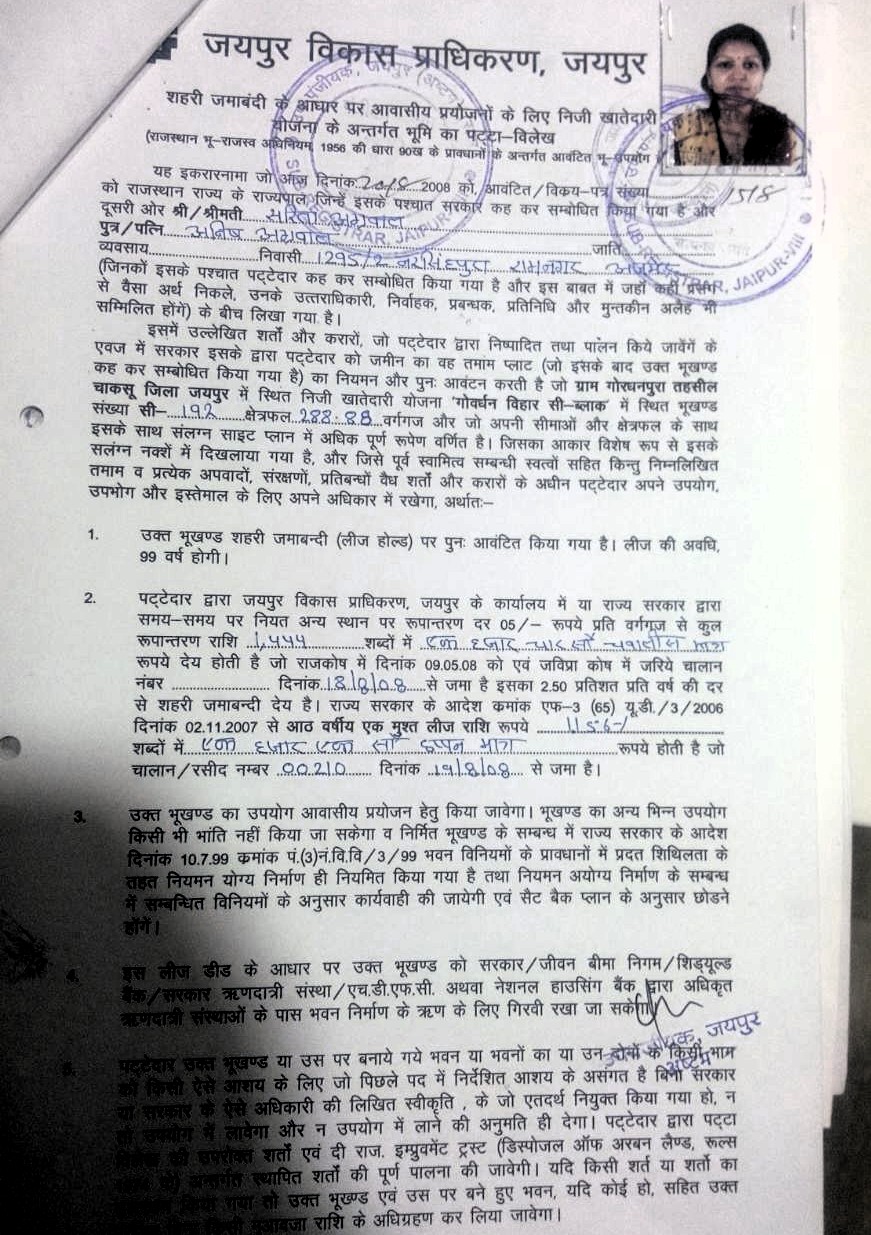 जयपुर विकास प्राधिकरण, जयपुर
शहरी जमाबंदी के आधार पर आवासीय प्रयोजनों के लिए निजी खातेदारी
योजना के अन्तर्गत भूमि का पट्टा–विलेख
(राजस्थान भू–राजस्व अधिनियम, 1956 की धारा 90ख के प्रावधानों के अन्तर्गत आवंटित भू–उपयोग
यह इकरारनामा जो आज दिनांक 20/8 2008 को, आवंटित/विकय–पत्र संख्या 1518
को राजस्थान राज्य के राज्यपाल जिन्हें इसके पश्चात सरकार कह कर सम्बोधित किया गया है और
दूसरी ओर श्री/श्रीमती सरिता अग्रवाल
पुत्र/पत्नि अनिष अग्रवाल जाति
व्यवसाय निवासी 1295/2 नरसिंहपुरा रामनगर अजमेर
(जिनकों इसके पश्चात पट्टेदार कह कर सम्बोधित किया गया है और इस बाबत में जहाँ कहीं प्रसंग
से वैसा अर्थ निकले, उनके उत्तराधिकारी, निर्वाहक, प्रबन्धक, प्रतिनिधि और मुन्तकीन अलैह भी
सम्मिलित होंगे) के बीच लिखा गया है।
इसमें उल्लेखित शर्तो और करारों, जो पट्टेदार द्वारा निष्पादित तथा पालन किये जावेंगें के
एवज में सरकार इसके द्वारा पट्टेदार को जमीन का वह तमाम प्लाट (जो इसके बाद उक्त भूखण्ड
कह कर सम्बोधित किया गया है) का नियमन और पुनः आवंटन करती है जो ग्राम गोरधनपुरा तहसील
चाकसू जिला जयपुर में स्थित निजी खातेदारी योजना 'गोवर्धन विहार सी–ब्लाक' में स्थित भूखण्ड
संख्या सी– 192 क्षेत्रफल 288.88 वर्गगज और जो अपनी सीमाओं और क्षेत्रफल के साथ
इसके साथ संलग्न साइट प्लान में अधिक पूर्ण रूपेण वर्णित है। जिसका आकार विशेष रूप से इसके
सलंग्न नक्शें में दिखलाया गया है, और जिसे पूर्व स्वामित्व सम्बन्धी स्वत्वों सहित किन्तु निम्नलिखित
तमाम व प्रत्येक अपवादों, संरक्षणों, प्रतिबन्धों वैध शर्तो और करारों के अधीन पट्टेदार अपने उपयोग,
उपभोग और इस्तेमाल के लिए अपने अधिकार में रखेगा, अर्थातः–
1. उक्त भूखण्ड शहरी जमाबन्दी (लीज होल्ड) पर पुनः आवंटित किया गया है। लीज की अवधि,
99 वर्ष होगी।
2. पट्टेदार द्वारा जयपुर विकास प्राधिकरण, जयपुर के कार्यालय में या राज्य सरकार द्वारा
समय–समय पर नियत अन्य स्थान पर रूपान्तरण दर 05/– रूपये प्रति वर्गगज से कुल
रूपान्तरण राशि 1,444 शब्दों में एक हजार चार सौ चवालीस मात्र
रूपये देय होती है जो राजकोष में दिनांक 09.05.08 को एवं जविप्रा कोष में जरिये चालान
नंबर दिनांक 18/8/08 से जमा है इसका 2.50 प्रतिशत प्रति वर्ष की दर
से शहरी जमाबन्दी देय है। राज्य सरकार के आदेश कमांक एफ–3 (65) यू.डी./3/2006
दिनांक 02.11.2007 से आठ वर्षीय एक मुश्त लीज राशि रूपये 1156-/
शब्दों में एक हजार एक सौ छप्पन मात्र रूपये होती है जो
चालान/रसीद नम्बर 00210 दिनांक 19/8/08 से जमा है।
3. उक्त भूखण्ड का उपयोग आवासीय प्रयोजन हेतु किया जावेगा। भूखण्ड का अन्य भिन्न उपयोग
किसी भी भांति नहीं किया जा सकेगा व निर्मित भूखण्ड के सम्बन्ध में राज्य सरकार के आदेश
दिनांक 10.7.99 कमांक पं.(3)नं.वि.वि/3/99 भवन विनियमों के प्रावधानों में प्रदत शिथिलता के
तहत नियमन योग्य निर्माण ही नियमित किया गया है तथा नियमन अयोग्य निर्माण के सम्बन्ध
में सम्बन्धित विनियमों के अनुसार कार्यवाही की जायेगी एवं सैट बैक प्लान के अनुसार छोडने
होंगें।
4. इस लीज डीड के आधार पर उक्त भूखण्ड को सरकार/जीवन बीमा निगम/शिड्यूल्ड
बैंक/सरकार ऋणदात्री संस्था/एच.डी.एफ.सी. अथवा नेशनल हाउसिंग बैंक द्वारा अधिकृत
ऋणदात्री संस्थाओं के पास भवन निर्माण के ऋण के लिए गिरवी रखा जा सकेगा।
जयपुर
5. पट्टेदार उक्त भूखण्ड या उस पर बनाये गये भवन या भवनों का या उन दोनो के किसी भाम
को किसी ऐसे आशय के लिए जो पिछले पद में निर्देशित आशय के असंगत है बिना सरकार
या सरकार के ऐसे अधिकारी की लिखित स्वीकृति , के जो एतदर्थ नियुक्त किया गया हो, न
तो उपयोग में लावेगा और न उपयोग में लाने की अनुमति ही देगा। पट्टेदार द्वारा पट्टा
की उपरोक्त शर्तो एवं दी राज. इम्प्रुवमेंट ट्रस्ट (डिस्पोजल ऑफ अरबन लैण्ड, रूल्स
अन्तर्गत स्थापित शर्तो की पूर्ण पालना की जावेगी। यदि किसी शर्त या शर्तो का
किया गया तो उक्त भूख्ण्ड एवं उस पर बने हुए भवन, यदि कोई हो, सहित उक्त
मुआवजा राशि के अधिग्रहण कर लिया जावेगा।